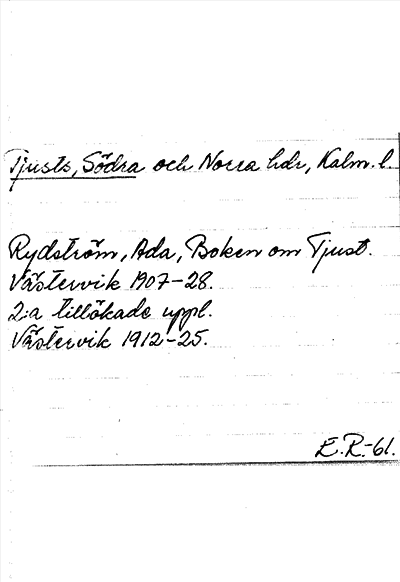 Tjusts, Södra och Norra hdr, Kalm. l.
Rydström, Ada, Boken om Tjust.
Västervik 1907-28.
2:a tillökade uppl.
Västervik 1912-25.
E.R.-61.